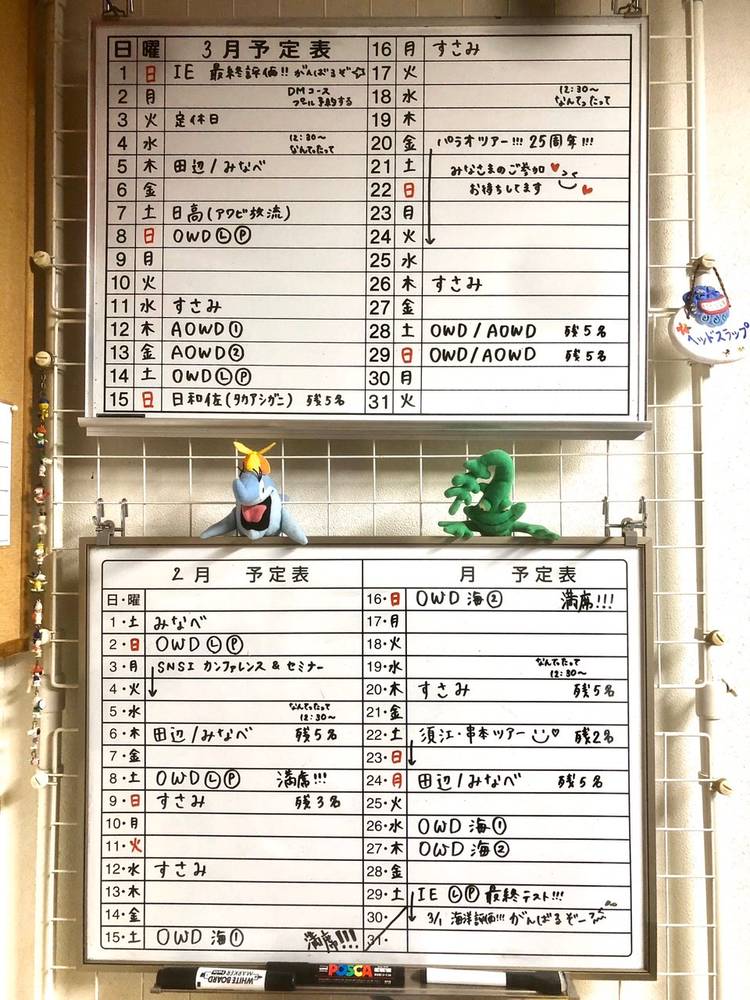 日 曜 3月予定表
1 日 IE 最終評価!! がんばるぞ☆
2 月 DMコース
プール予約する
3 火 定休日
4 水 12:30~
なんてったって
5 木 田辺/みなべ
6 金
7 土 日高(アワビ放流)
8 日 OWDⓁⓅ
9 月
10 火
11 水 すさみ
12 木 AOWD①
13 金 AOWD②
14 土 OWDⓁⓅ
15 日 日和佐(タカアシガニ) 残5名
16 月 すさみ
17 火
18 水 12:30~
なんてったって
19 木
20 金 パラオツアー!!! 25周年!!!
21 土 みなさまのご参加
22 日 お待ちしてます
23 月
24 火
25 水
26 木 すさみ
27 金
28 土 OWD/AOWD 残5名
29 日 OWD/AOWD 残5名
30 月
31 火
ヘッドスラップ
2月 予定表
日・曜
1・土 みなべ
2・日 OWDⓁⓅ
3・月 SNSI カンファレンス & セミナー
4・火
5・水 なんてったって
12:30~
6・木 田辺/みなべ 残5名
7・金
8・土 OWDⓁⓅ 満席!!!
9・日 すさみ 残3名
10・月
11・火
12・水 すさみ
13・木
14・金
15・土 OWD 海① 満席!!!
月 予定表
16・日 OWD 海② 満席!!!
17・月
18・火
19・水 なんてったって
12:30~
20・木 すさみ 残5名
21・金
22・土 須江・串本ツアー 残2名
23・日
24・月 田辺/みなべ 残5名
25・火
26・水 OWD 海①
27・木 OWD 海②
28・金
29・土 IE ⓁⓅ 最終テスト!!!
30・ 3/1 海洋評価!!! がんばるぞー
31・
WHITE BOARD
MARKER
POSCA